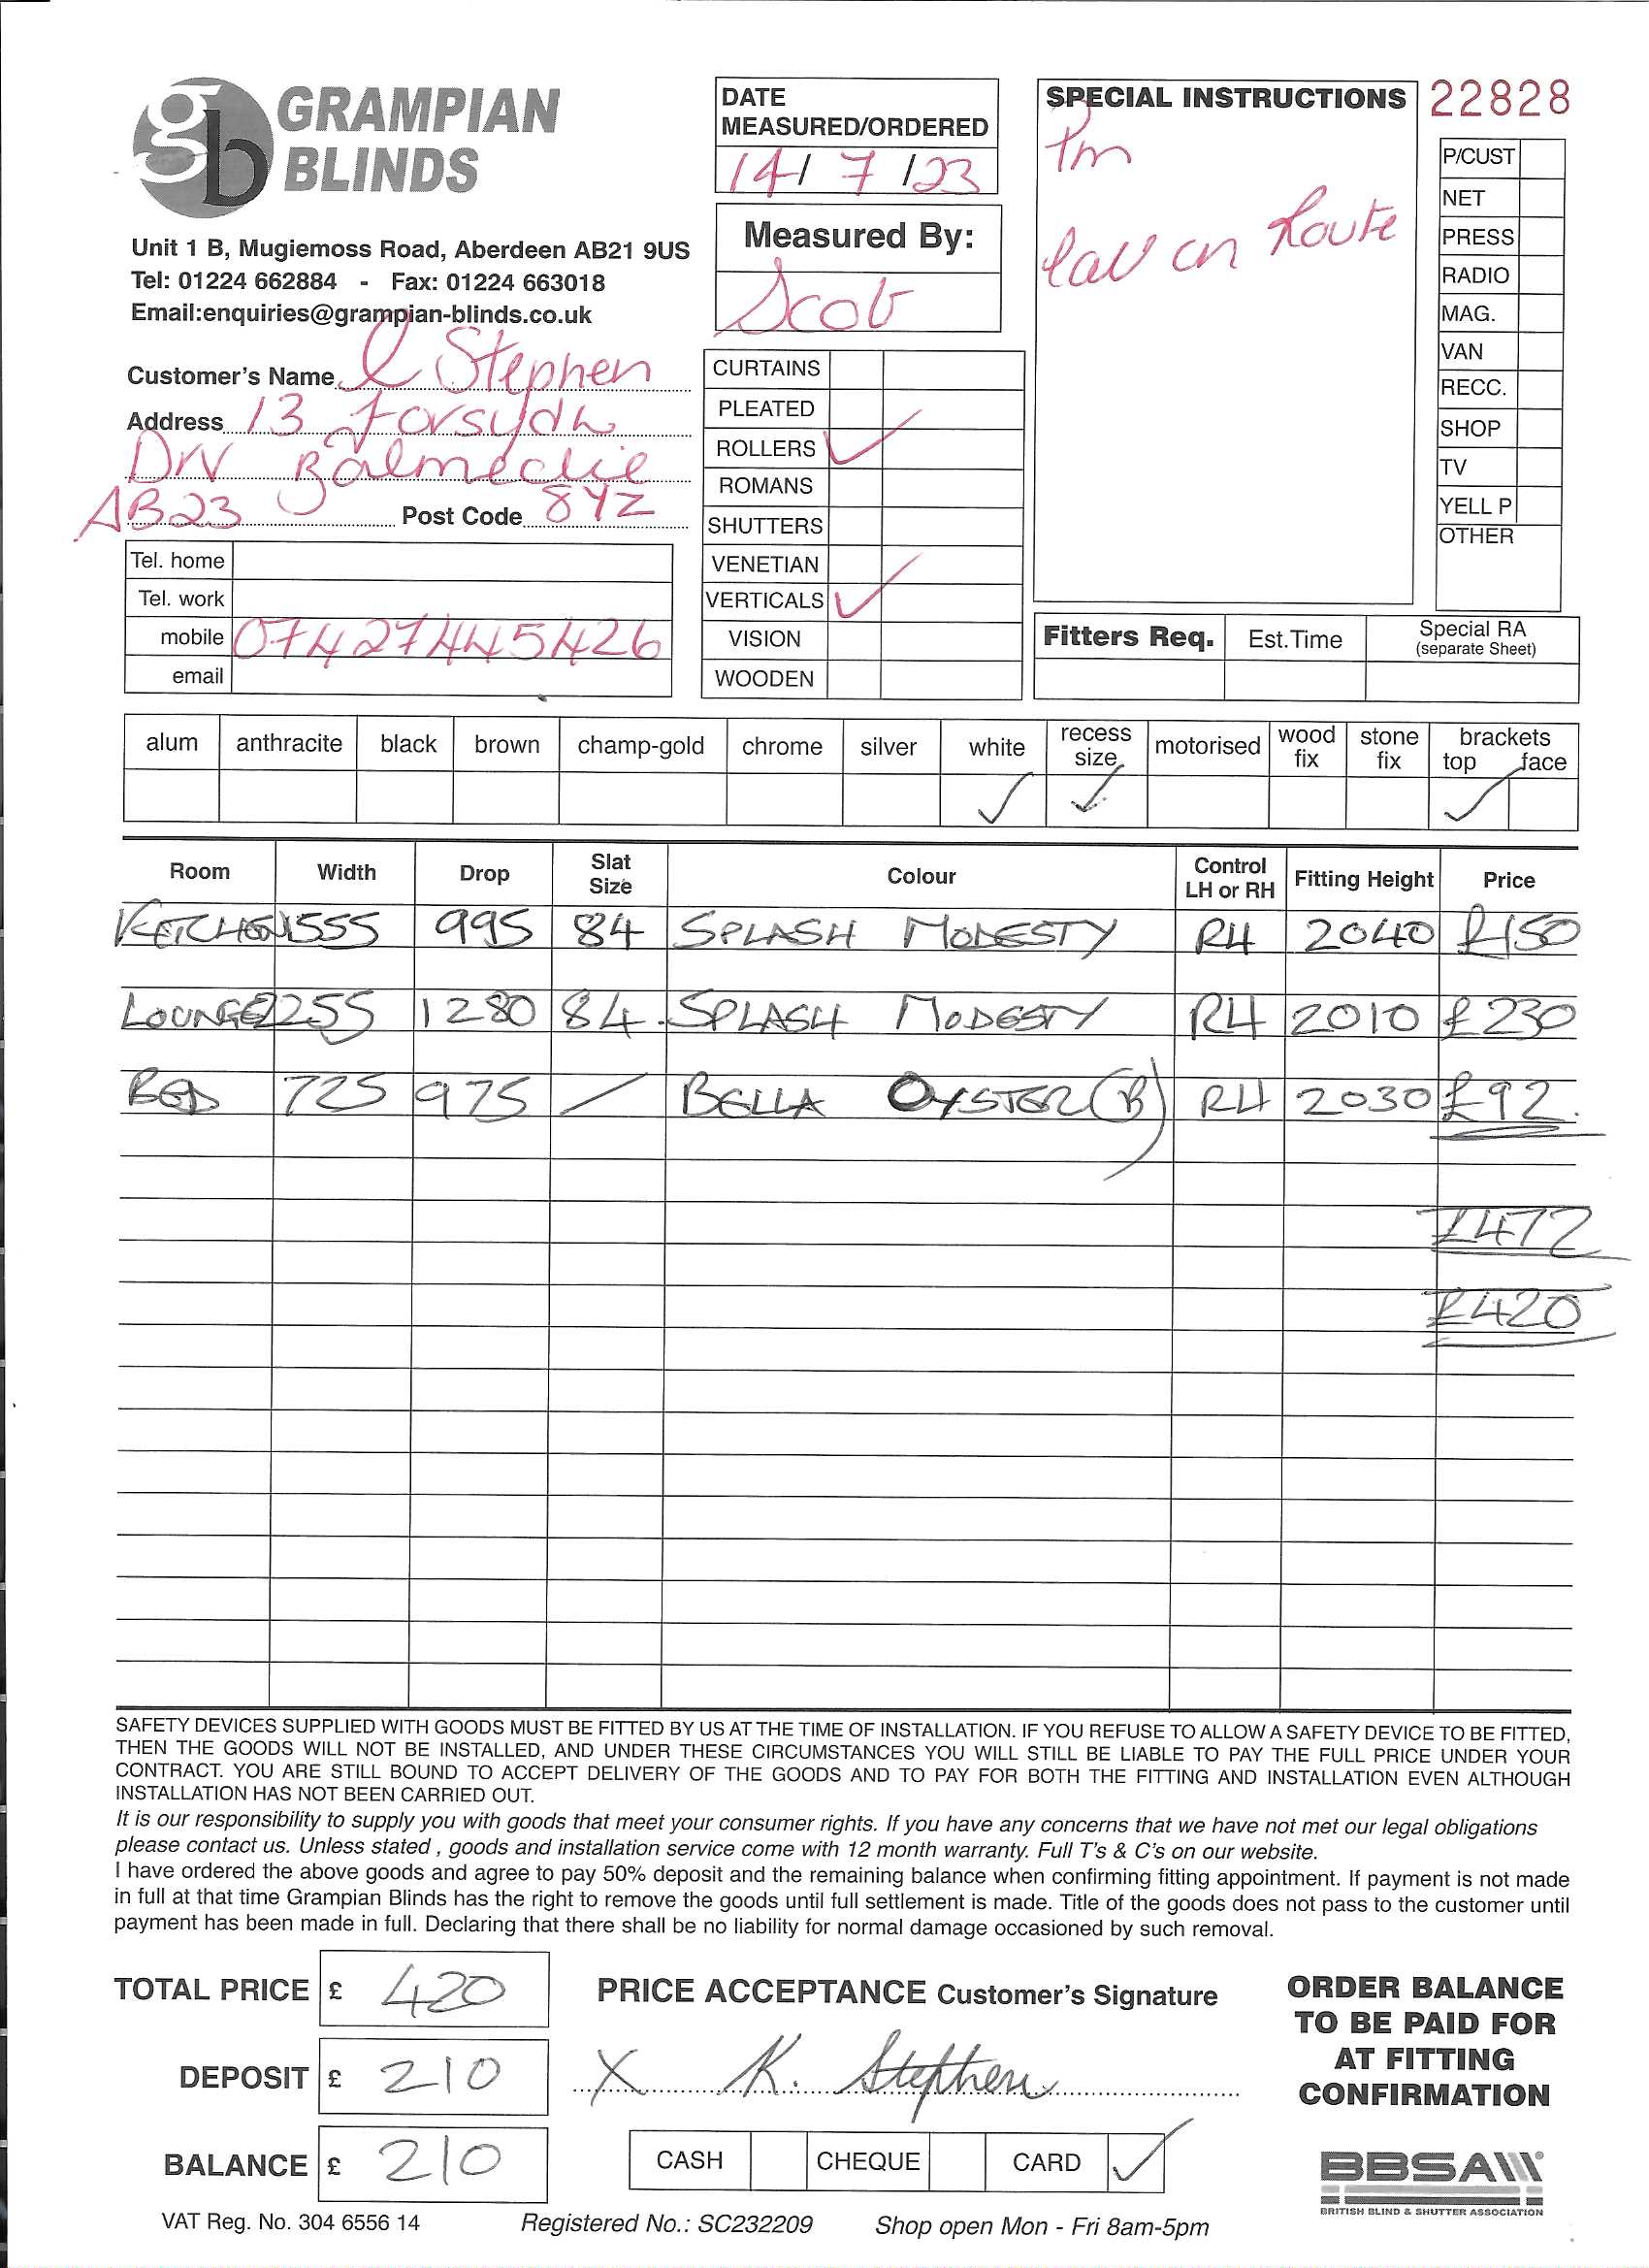 GRAMPIAN
BLINDS
Unit 1 B, Mugiemoss Road, Aberdeen AB21 9US
Tel: 01224 662884 - Fax: 01224 663018
Email:enquiries@grampian-blinds.co.uk
DATE
MEASURED/ORDERED
14/ 7 /23
Measured By:
Scob
SPECIAL INSTRUCTIONS
Pm
Call on Route
22828
P/CUST
NET
PRESS
RADIO
MAG.
VAN
RECC.
SHOP
TV
YELL P
OTHER
Customer's Name Stephen
Address 13 Forsyth
Drv Balmedie
AB23 Post Code 8YZ
Tel. home
Tel. work
mobile 07427445426
email
CURTAINS
PLEATED
ROLLERS ✓
ROMANS
SHUTTERS
VENETIAN
VERTICALS ✓
VISION
WOODEN
Fitters Req. Est.Time Special RA
(separate Sheet)
alum anthracite black brown champ-gold chrome silver white recess size motorised wood fix stone fix brackets top face
✓ ✓ ✓
Room Width Drop Slat Size Colour Control LH or RH Fitting Height Price
KITCHEN 1555 995 84 SPLASH MODESTY RH 2040 £150
LOUNGE 2255 1280 84 SPLASH MODESTY RH 2010 £230
BED 725 975 / BELLA OYSTER (B) RH 2030 £92
£472
£420
SAFETY DEVICES SUPPLIED WITH GOODS MUST BE FITTED BY US AT THE TIME OF INSTALLATION. IF YOU REFUSE TO ALLOW A SAFETY DEVICE TO BE FITTED,
THEN THE GOODS WILL NOT BE INSTALLED, AND UNDER THESE CIRCUMSTANCES YOU WILL STILL BE LIABLE TO PAY THE FULL PRICE UNDER YOUR
CONTRACT. YOU ARE STILL BOUND TO ACCEPT DELIVERY OF THE GOODS AND TO PAY FOR BOTH THE FITTING AND INSTALLATION EVEN ALTHOUGH
INSTALLATION HAS NOT BEEN CARRIED OUT.
It is our responsibility to supply you with goods that meet your consumer rights. If you have any concerns that we have not met our legal obligations
please contact us. Unless stated , goods and installation service come with 12 month warranty. Full T's & C's on our website.
I have ordered the above goods and agree to pay 50% deposit and the remaining balance when confirming fitting appointment. If payment is not made
in full at that time Grampian Blinds has the right to remove the goods until full settlement is made. Title of the goods does not pass to the customer until
payment has been made in full. Declaring that there shall be no liability for normal damage occasioned by such removal.
TOTAL PRICE £ 420
DEPOSIT £ 210
BALANCE £ 210
PRICE ACCEPTANCE Customer's Signature
X K. Stephen
CASH CHEQUE CARD ✓
ORDER BALANCE
TO BE PAID FOR
AT FITTING
CONFIRMATION
BBSA
BRITISH BLIND & SHUTTER ASSOCIATION
VAT Reg. No. 304 6556 14 Registered No.: SC232209 Shop open Mon - Fri 8am-5pm